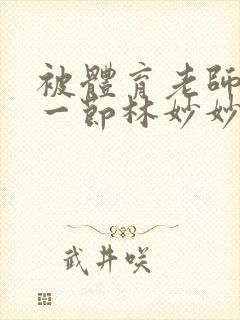 被體育老師
一節林妙妙
武井咲